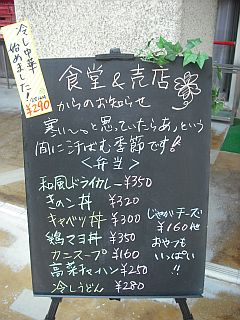 冷し中華
始めました!
¥290
食堂&売店
からのお知らせ
寒い…と思っていたらあっという
間に汗ばむ季節です!
<弁当>
和風ドライカレー ¥350
きのこ丼 ¥320
キャベツ丼 ¥300
鶏マヨ丼 ¥350
カニスープ ¥160
高菜チャーハン ¥250
冷しうどん ¥280
じゃがチーズ
¥160他
おやつも
いっぱい
!!